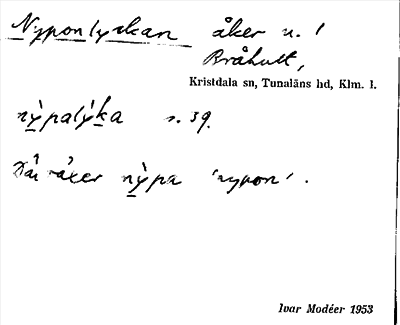 Nyponlyckan åker u. 1
Bråhult,
Kristdala sn, Tunaläns hd, Klm. l.
nỳpalýka s. 39.
Där växer nỳpa 'nypon'.
Ivar Modéer 1953